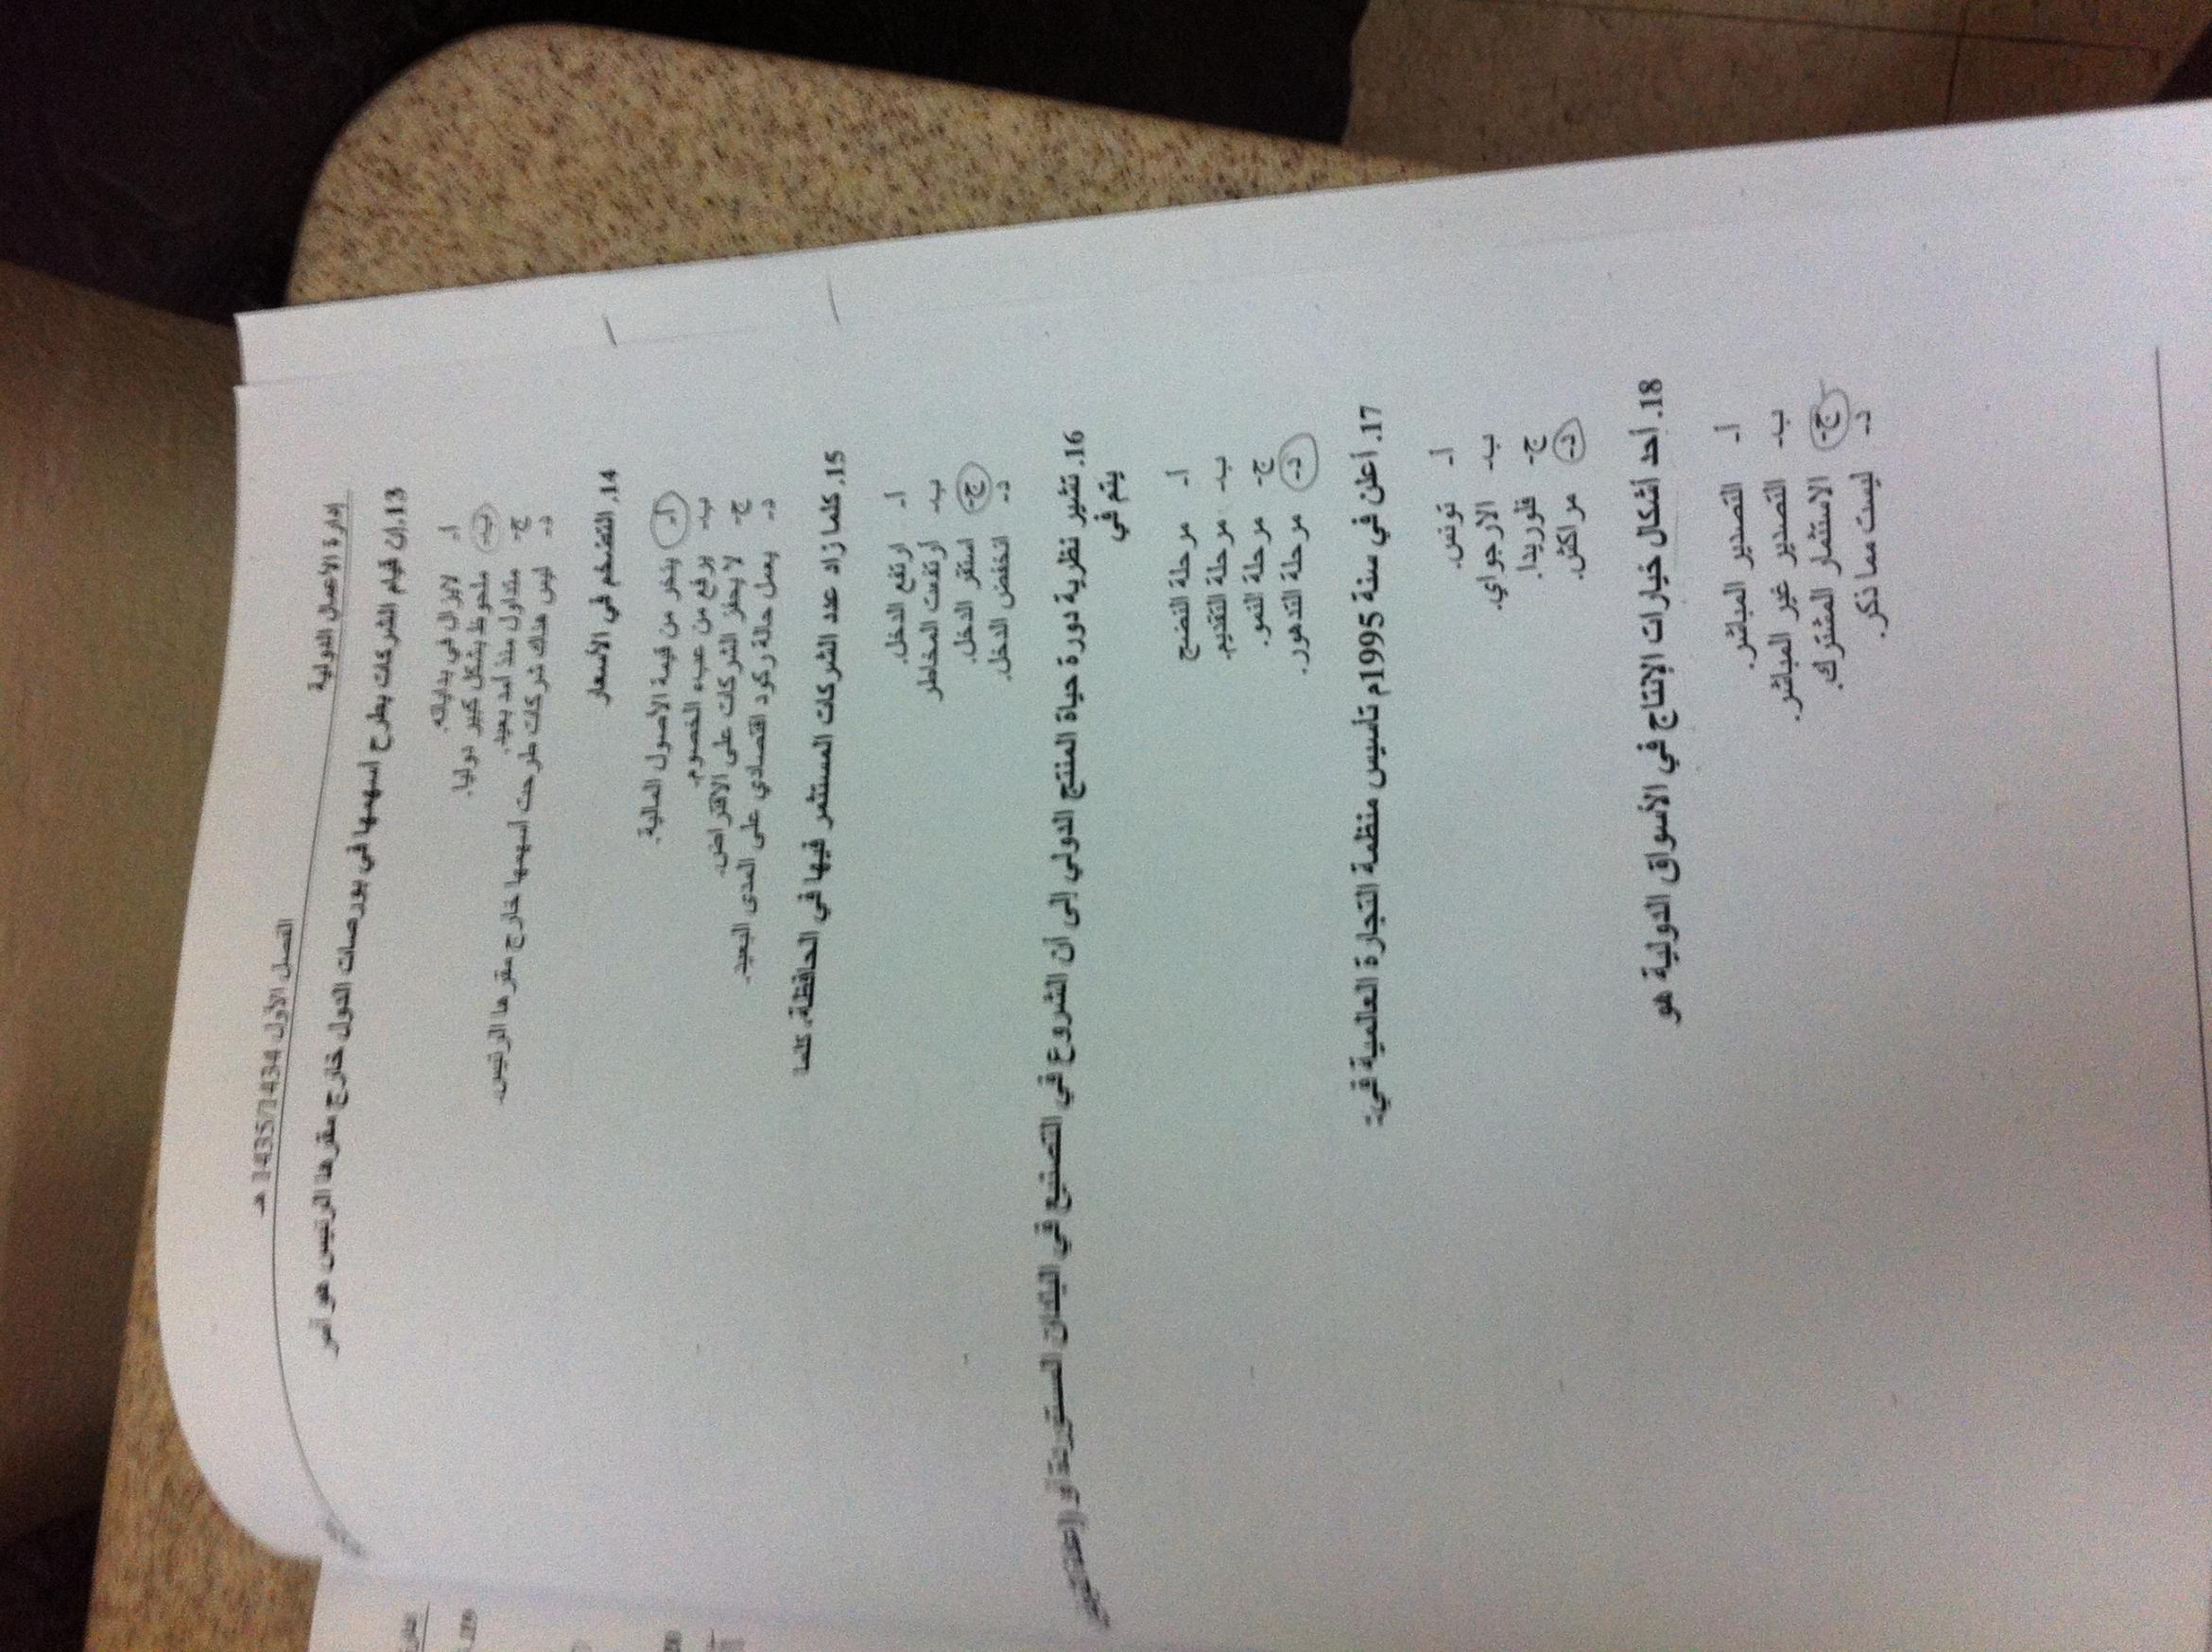 إدارة الأعمال الدولية
الفصل الأول 1435/1434 هـ
13. إن قيام الشركات بطرح أسهمها في بورصات الدول خارج مقرها الرئيس هو أمر
أ- لايزال في بداياته.
ب- ملحوظ بشكل كبير دوليا.
ج- متداول منذ أمد بعيد.
د- ليس هناك شركات طرحت أسهمها خارج مقرها الرئيس.
14. التضخم في الأسعار
أ- ينخر من قيمة الأصول المالية.
ب- يرفع من عبء الخصوم.
ج- لا يحفز الشركات على الاقتراض.
د- يمثل حالة ركود اقتصادي على المدى البعيد.
15. كلما زاد عدد الشركات المستثمر فيها في الحافظة، كلما
أ- ارتفع الدخل.
ب- أرتفعت المخاطر
ج- استقر الدخل.
د- انخفض الدخل.
16. تشير نظرية دورة حياة المنتج الدولي إلى أن الشروع في التصنيع في البلدان المستوردة أو
يتم في
أ- مرحلة النضج
ب- مرحلة التقديم.
ج- مرحلة النمو.
د- مرحلة التدهور.
17. أعلن في سنة 1995م تأسيس منظمة التجارة العالمية في:
أ- تونس.
ب- الارجواي.
ج- فلوريدا.
د- مراكش.
18. أحد أشكال خيارات الإنتاج في الأسواق الدولية هو
أ- التصدير المباشر.
ب- التصدير غير المباشر.
ج- الاستثمار المشترك.
د- ليست مما ذكر.